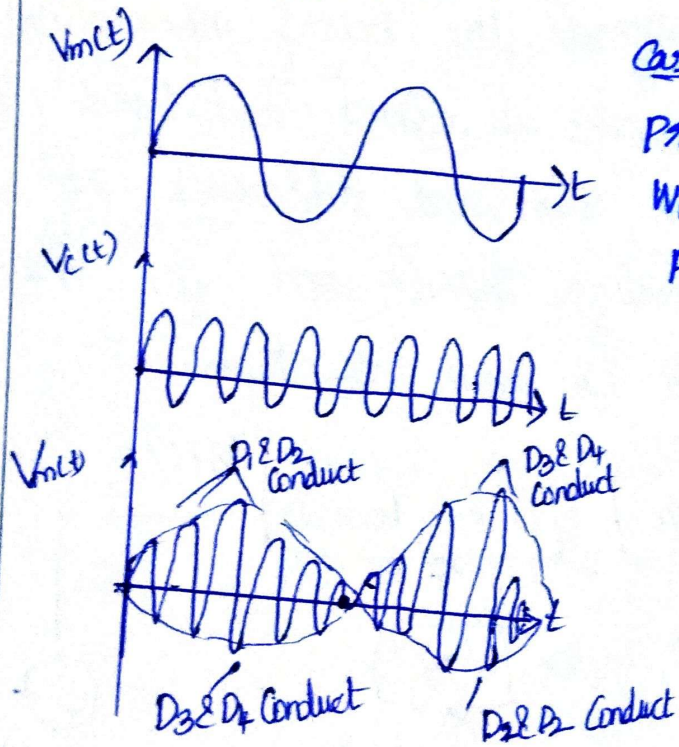 Vm(t)
t
Vc(t)
t
Vm(t)
D1 & D2
Conduct
D3 & D4
Conduct
t
D3 & D4 Conduct
D2 & D2 Conduct